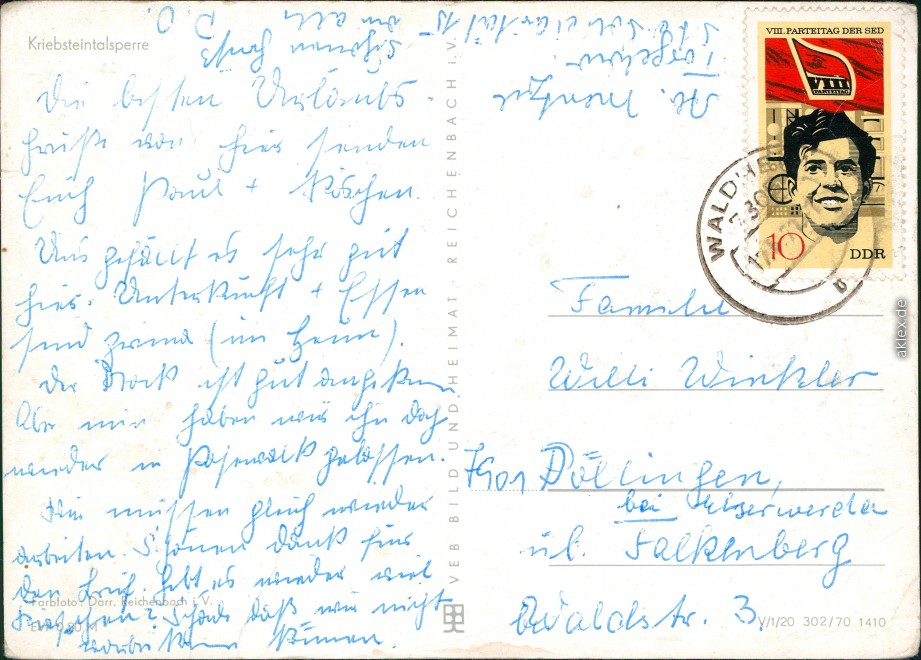 Kriebsteintalsperre
Die besten Urlaubs-
grüße von hier senden
Euch Paul + Röschen.
Uns gefällt es sehr gut
hier. Unterkunft + Essen
sind prima (im Heim).
Der Rock ist gut angekommen
Aber wir haben ihn doch
wieder in Pasewalk gelassen.
Wir müssen gleich wieder
arbeiten. Schönen Dank für
den Brief. Gibt es wieder viel
Kirschen? Schade daß wir nicht
können.
Farbfoto: Darr, Reichenbach i. V.
schönen Gruß
von
VEB BILD UND HEIMAT REICHENBACH I. V.
VIII. PARTEITAG DER SED
PARTEITAG
10
DDR
WALDHE
Familie
Willi Winkler
7901 Döllingen,
bei Elsterwerda
üb. Falkenberg
Waldstr. 3
V/1/20 302/70 1410
aklex.de